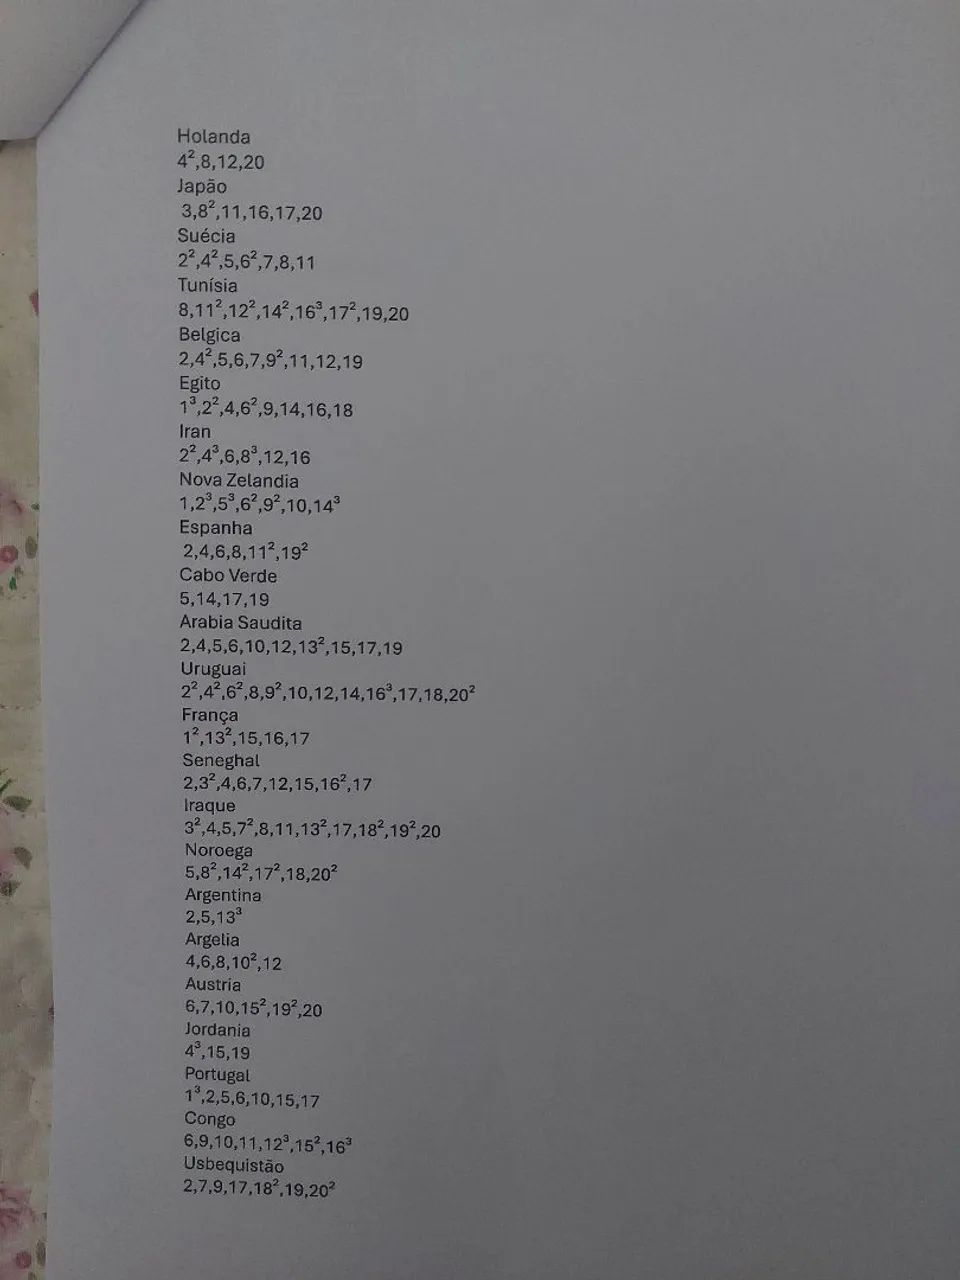 Holanda
4²,8,12,20
Japão
3,8²,11,16,17,20
Suécia
2²,4²,5,6²,7,8,11
Tunísia
8,11²,12²,14²,16³,17²,19,20
Belgica
2,4²,5,6,7,9²,11,12,19
Egito
1³,2²,4,6²,9,14,16,18
Iran
2²,4³,6,8³,12,16
Nova Zelandia
1,2³,5³,6²,9²,10,14³
Espanha
2,4,6,8,11²,19²
Cabo Verde
5,14,17,19
Arabia Saudita
2,4,5,6,10,12,13²,15,17,19
Uruguai
2²,4²,6²,8,9²,10,12,14,16³,17,18,20²
França
1²,13²,15,16,17
Seneghal
2,3²,4,6,7,12,15,16²,17
Iraque
3²,4,5,7²,8,11,13²,17,18²,19²,20
Noroega
5,8²,14²,17²,18,20²
Argentina
2,5,13³
Argelia
4,6,8,10²,12
Austria
6,7,10,15²,19²,20
Jordania
4³,15,19
Portugal
1³,2,5,6,10,15,17
Congo
6,9,10,11,12³,15²,16³
Usbequistão
2,7,9,17,18²,19,20²